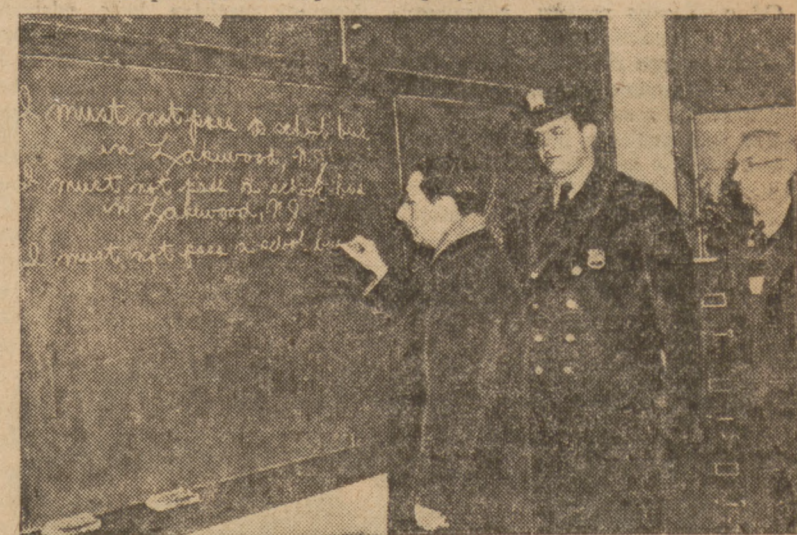 I must not pass a school bus
in Lakewood, N.J.
I must not pass a school bus
in Lakewood, N.J.
I must not pass a school bus